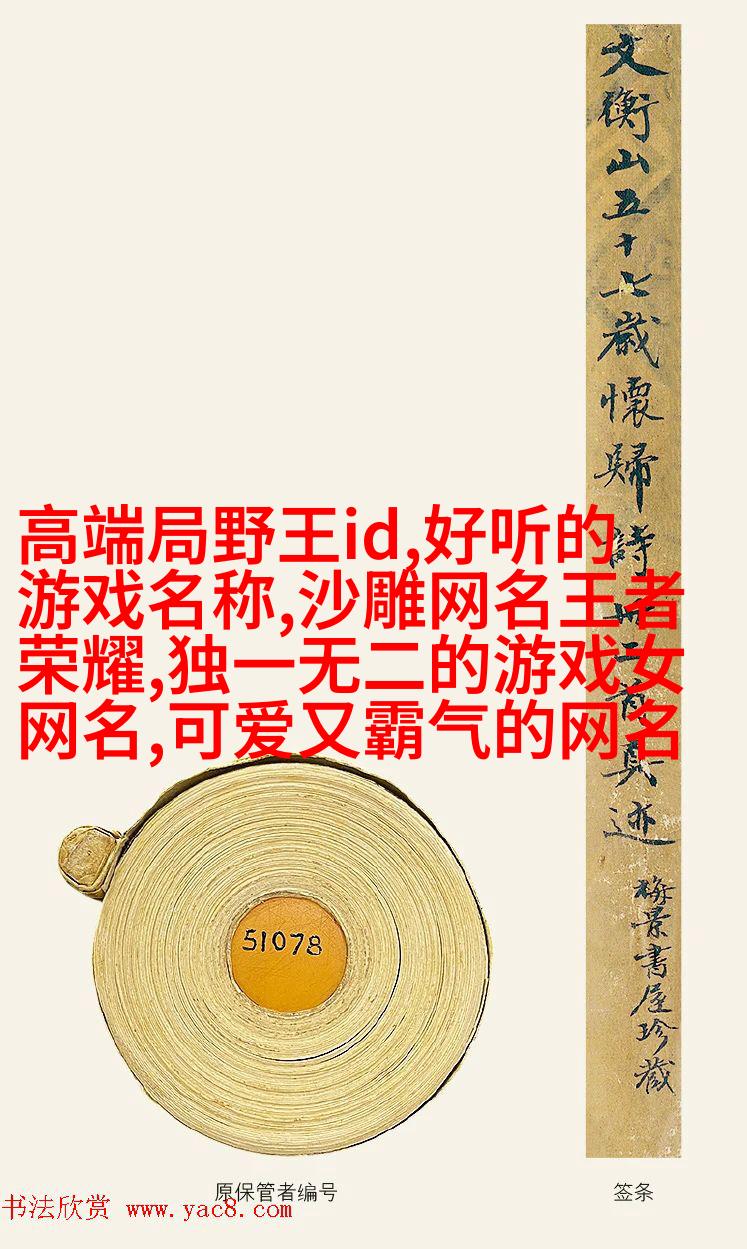 文衡山五十七歲懷歸詩卅二首真迹
梅景書屋珍藏
高端局野王id,好听的
游戏名称,沙雕网名王者
荣耀,独一无二的游戏女
网名,可爱又霸气的网名
51078
原保管者编号
签条
书法欣赏 www.yac8.com